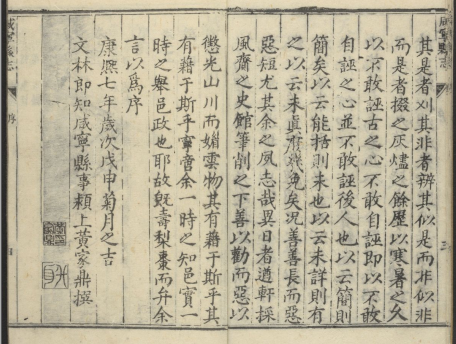 其是者刈其非者辨其似是而非似非
而是者掇之灰燼之餘歷以寒暑之久
以不敢誣古之心不敢自誣即以不敢
自誣之心並不敢誣後人也以云簡則
簡矣以云能括則未也以云未詳則有
之以云未真庶幾免矣况善善長而惡
惡短尤其余之夙志哉異日者遒軒採
風齋之史館筆削之下善以勸而惡以
懲光山川而媚雲物其有藉于斯乎其
有藉于斯乎寧啻余一時之知邑實一
時之舉邑政也耶故旣壽梨棗而弁余
言以為序
康熙七年歲次戊申菊月之吉
文林郎知咸寧縣事潁上黃家鼎撰
咸寧縣志
序
三